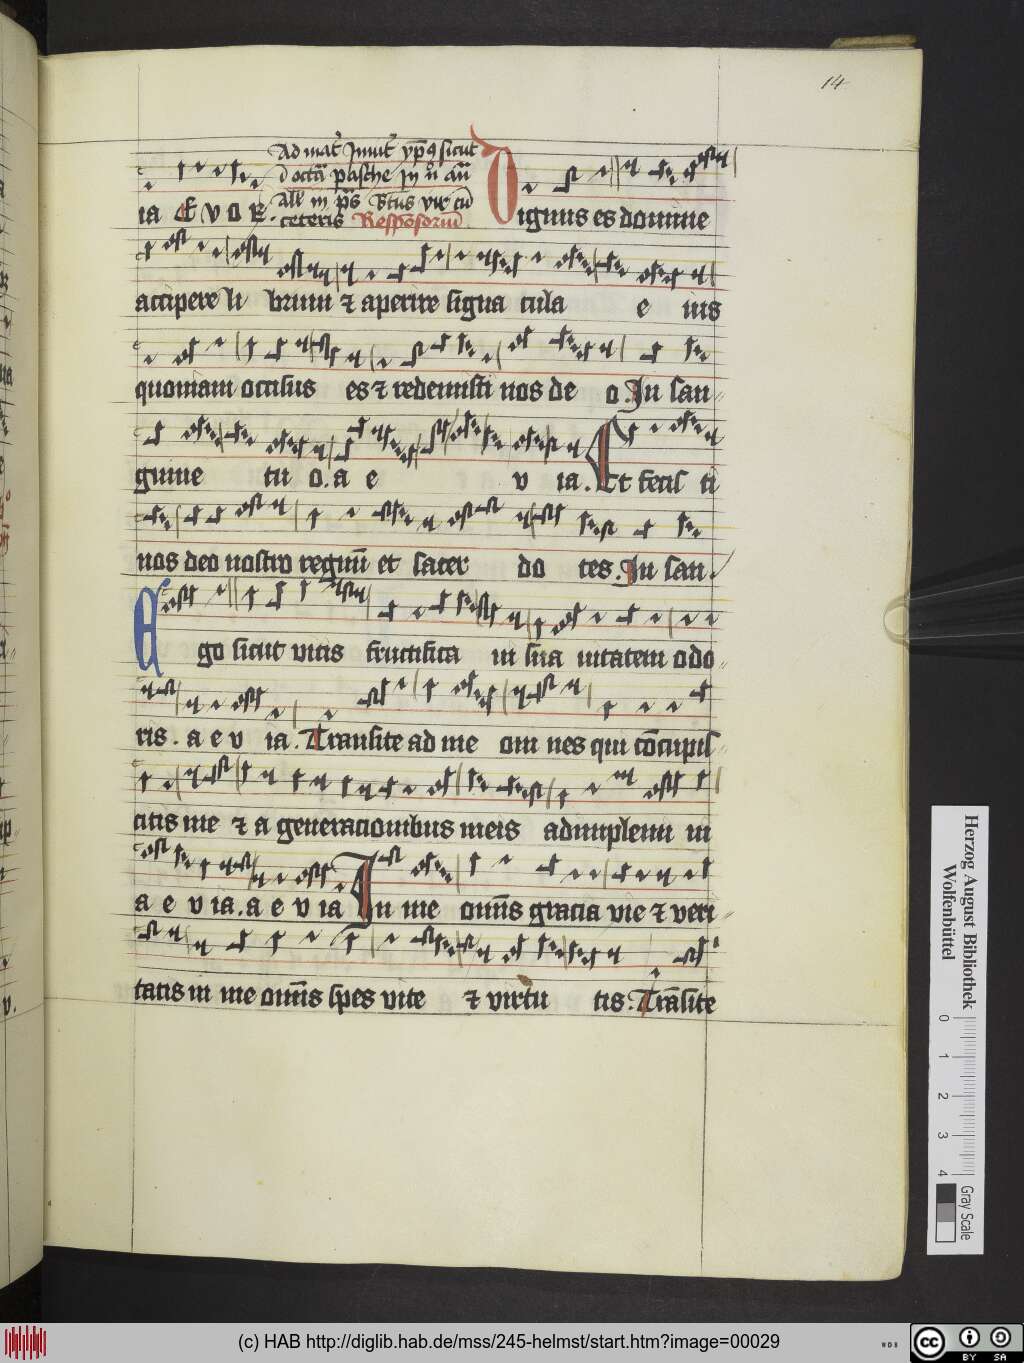 14
Ad mat᷑ Jnuit᷑ xp̄s sicut
d octā pasche
all
ceteris Respōsoriū
ia E v o e. Dignus es domine
accipere li brum ⁊ aperire signa cula e ius
quoniam occisus es ⁊ redemisti nos de o. Jn san
guine tu o. a e v ia. Et fecis ti
nos deo nostro regnū et sacer do tes. Jn san.
Ego sicut vitis fructifica ui sua uitatem odo
ris. a e v ia. Transite ad me om nes qui cōcupis
citis me ⁊ a generacionibus meis adimplemi ni
a e v ia. a e v ia Jn me omīs gracia vie ⁊ veri
tatis in me omīs spes vite ⁊ virtu tis. Trāsite
Herzog August Bibliothek
Wolfenbüttel
0 1 2 3 4
Gray Scale
(c) HAB http://diglib.hab.de/mss/245-helmst/start.htm?image=00029
WDB
cc
BY SA